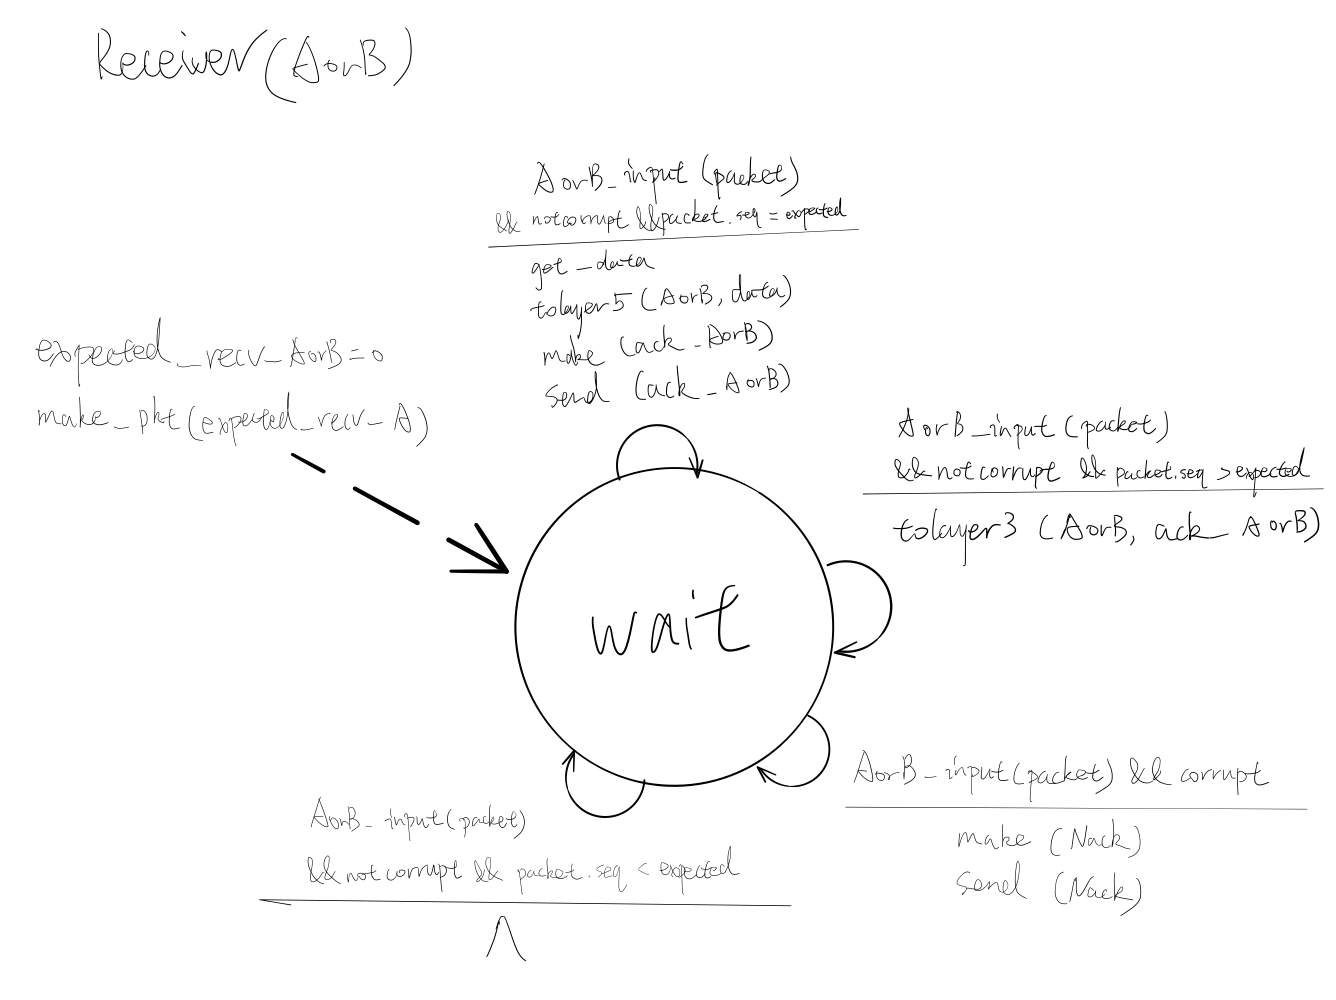 Receiver(AorB)
AorB_input (packet)
&& notcorrupt &&packet.seq = expected
get_data
tolayer5 (AorB, data)
make (ack_AorB)
send (ack_AorB)
expected_recv_AorB=0
make_pkt(expected_recv_A)
AorB_input (packet)
&& not corrupt && packet.seq > expected
tolayer3 (AorB, ack_AorB)
wait
AorB_input(packet) && corrupt
make (Nack)
send (Nack)
AorB_input(packet)
&& not corrupt && packet.seq < expected
Λ